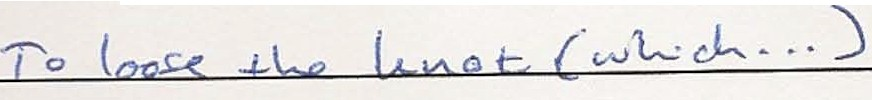 To loose the knot (which...)